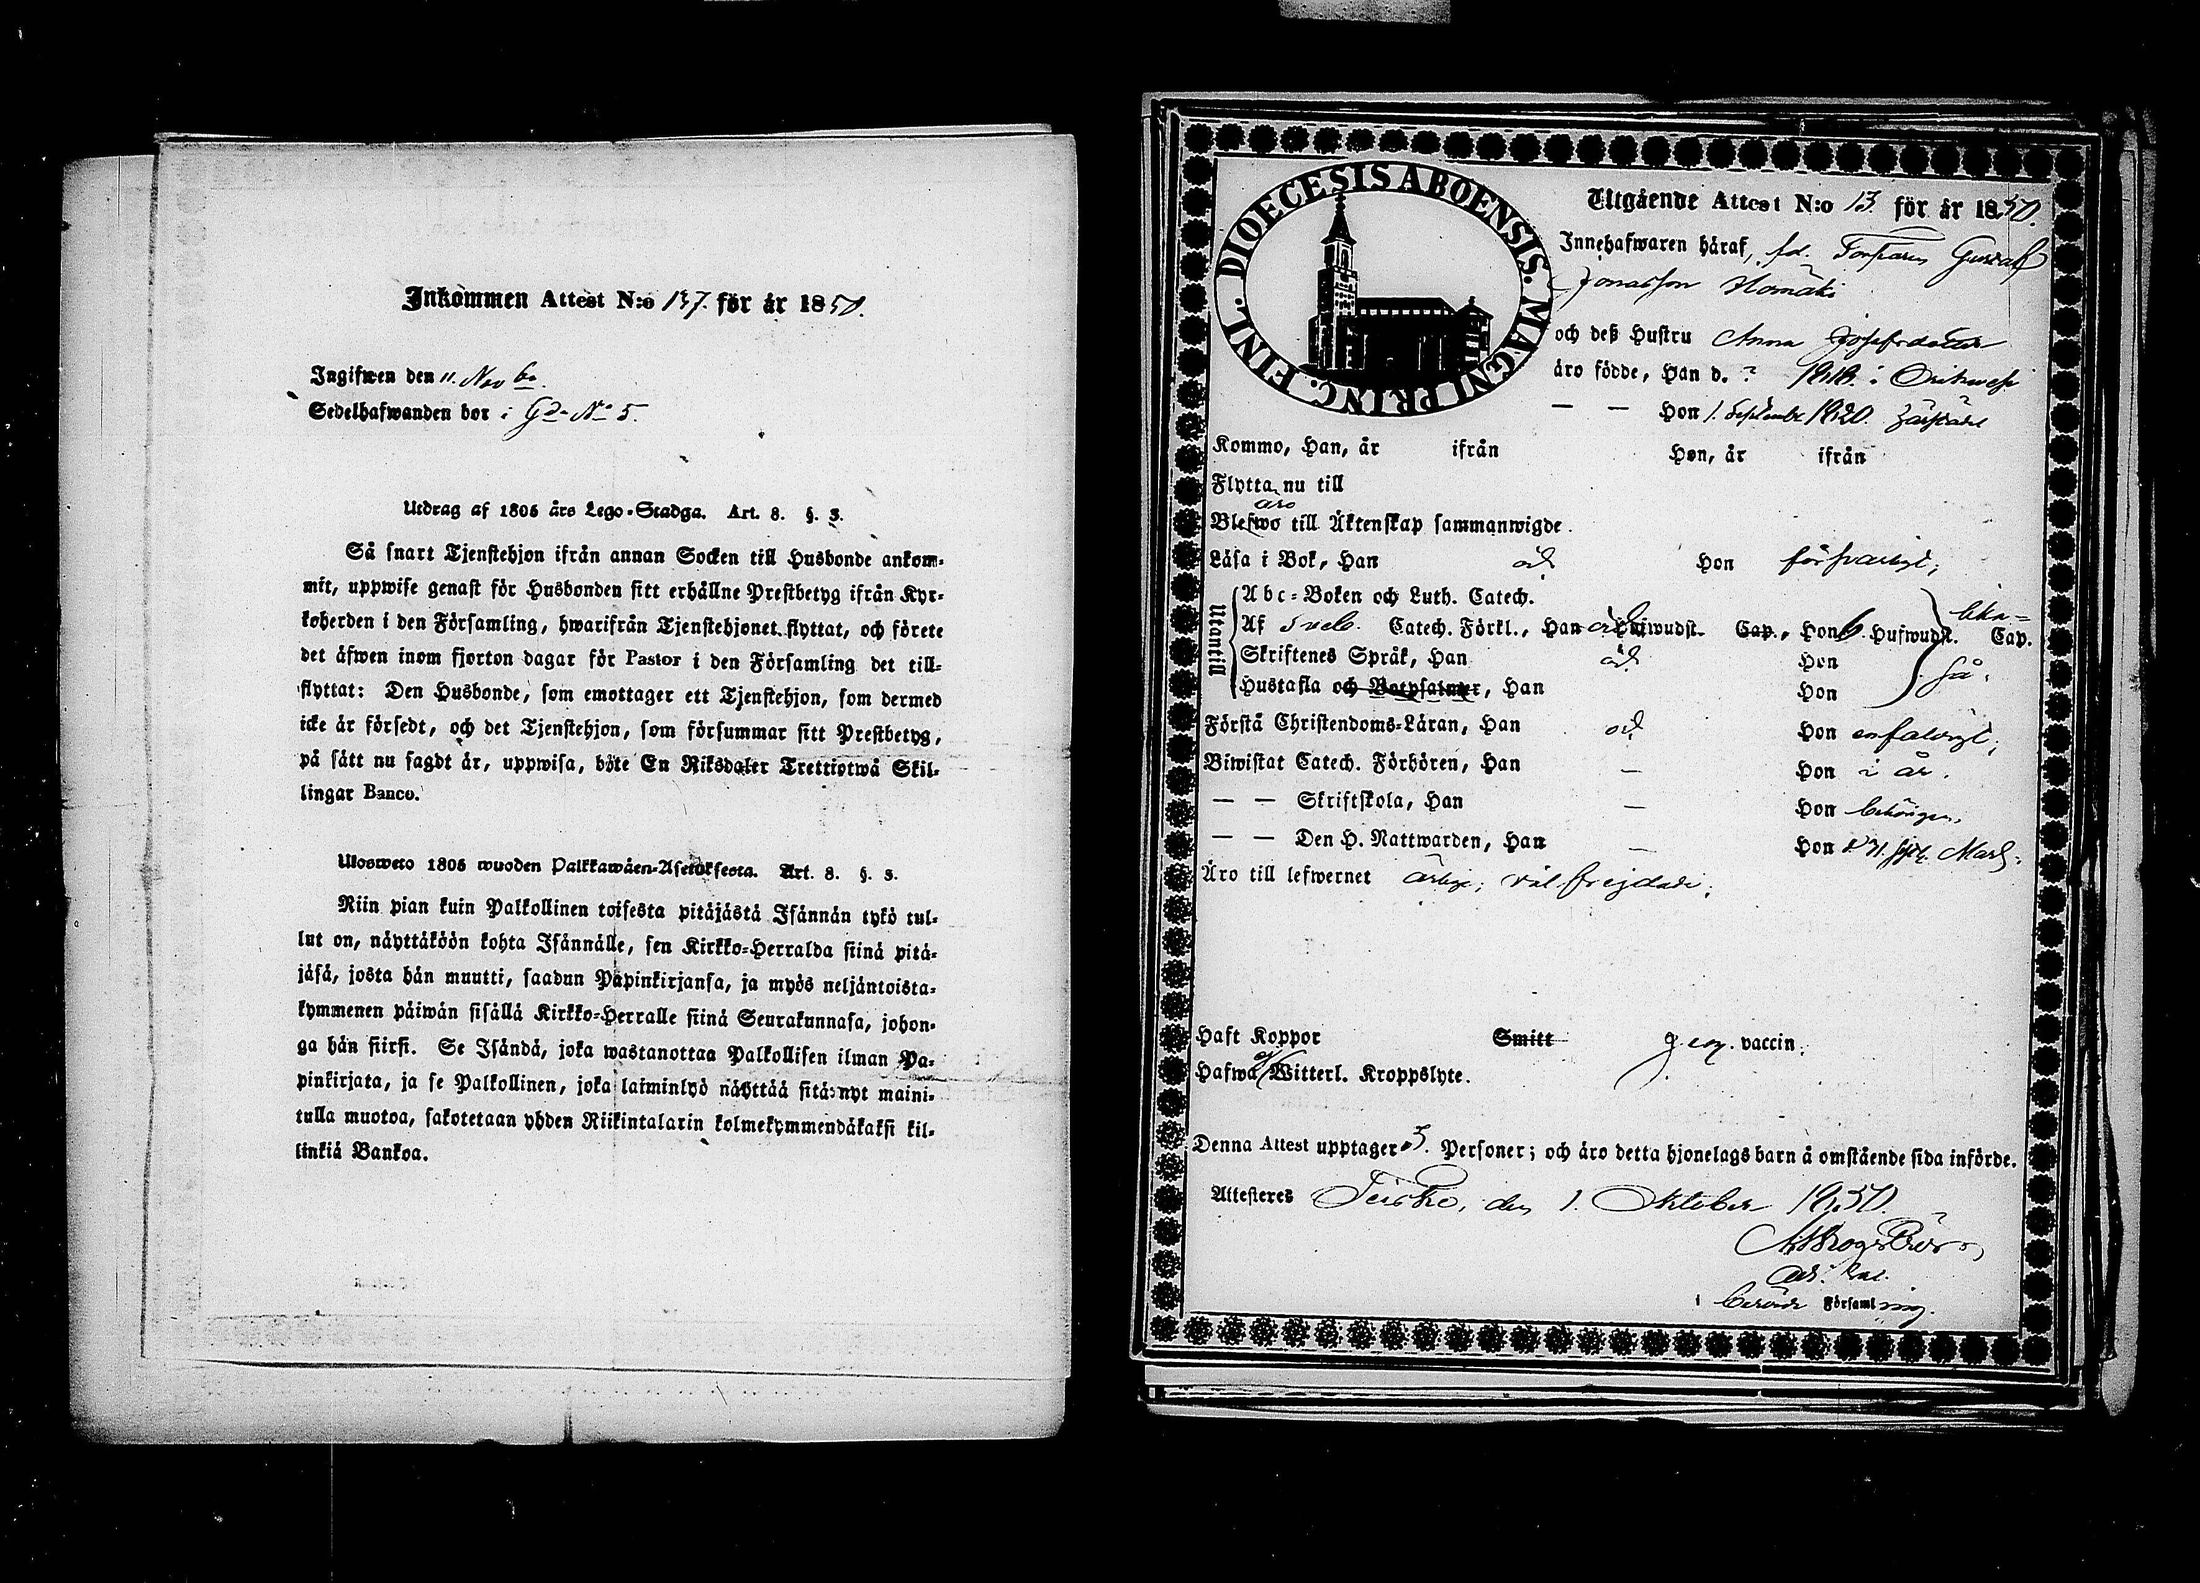 Inkommen Attest N:o 137. för år 1850.
Ingifwen den 11. Novb.
Sedelhafwanden bor i Gd. No 5.
Utdrag af 1805 års Lego-Stadga. Art. 8. §. 3.
Så snart Tjenstehjon ifrån annan Socken till Husbonde ankom-
mit, uppwise genast för Husbonden sitt erhållne Prestbetyg ifrån Kyr-
koherden i den Församling, hwarifrån Tjenstehjonet flyttat, och förete
det äfwen inom fjorton dagar för Pastor i den Församling det till-
flyttat: Den Husbonde, som emottager ett Tjenstehjon, som dermed
icke är försedt, och det Tjenstehjon, som försummar sitt Prestbetyg,
på sätt nu sagdt är, uppwisa, böte En Riksdaler Trettiotwå Skil-
lingar Banco.
Ulosweto 1805 wuoden Palkkawäen-Asetuksesta. Art. 8. §. 3.
Niin pian kuin Palkollinen toisesta pitäjästä Isännän tykö tul-
lut on, näyttäköön kohta Isännälle, sen Kirkko-Herralda siinä pitä-
jäsä, josta hän muutti, saadun Papinkirjansa, ja myös neljäntoista-
kymmenen päiwän sisällä Kirkko-Herralle siinä Seurakunnasa, johon-
ga hän siirsi. Se Isändä, joka wastanottaa Palkollisen ilman Pa-
pinkirjata, ja se Palkollinen, joka laiminlyö näyttää sitä nyt maini-
tulla muotoa, sakotetaan yhden Riikintalarin kolmekymmendäkaksi kil-
linkiä Bankoa.
DIOECESIS ABOENSIS. MAGNI PRINC. FINL.
Utgående Attest N:o 13. för år 1850.
Innehafwaren häraf, fd. Gustaf
Jonasson
och deß Hustru Anna Josefsdotter
äro födde, Han d. ? 1818. i Orihvesi
— — Hon 1. September 1820. härstädes
Kommo, Han, år ifrån Hon, år ifrån
Flytta nu till
äro
Blefwo till Äktenskap sammanwigde.
Läsa i Bok, Han och Hon försvarligt;
Utantill
Abc-Boken och Luth. Catech.
Af Sveb. Catech. Förkl., Han och Hufwudst. Cap., Hon 6. Hufwudst. lika- Cap.
Skriftenes Språk, Han och Hon
Hustafla och Botpsalmer, Han Hon så.
Förstå Christendoms-Läran, Han och Hon enfaldigt;
Biwistat Catech. Förhören, Han — Hon i år.
— — Skriftskola, Han — Hon behörigen,
— — Den H. Nattwarden, Han — Hon d. 31. sistl. Mars.
Äro till lefwernet ärlige; väl frejdade;
Haft Koppor Smitt g eg. vaccin.
Hafwa ej Witterl. Kroppslyte.
Denna Attest upptager 5. Personer; och äro detta hjonelags barn å omstående sida införde.
Attesteras Teisko, den 1. Oktober 1850.
i berörde Församling.